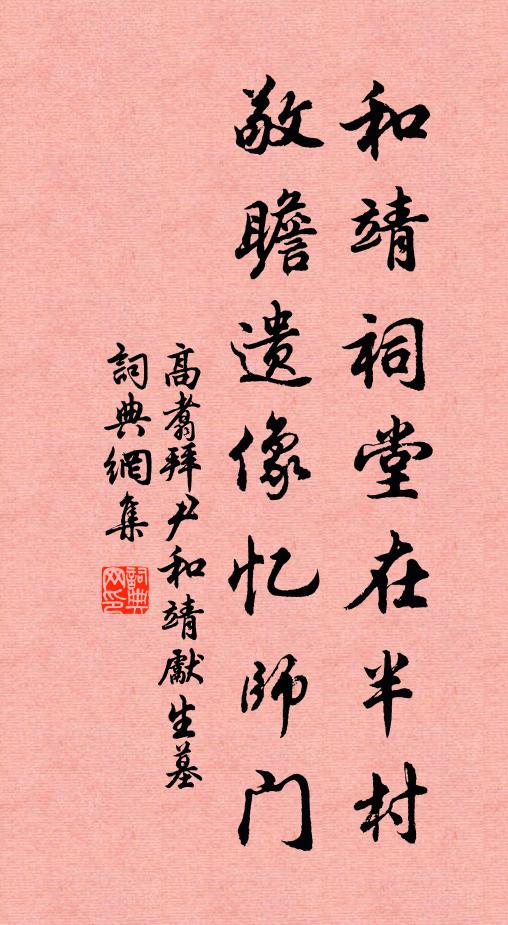 和靖祠堂在半村
敬瞻遗像忆師门
高翥拜尹和靖處生墓
詞典網集
詞典网印